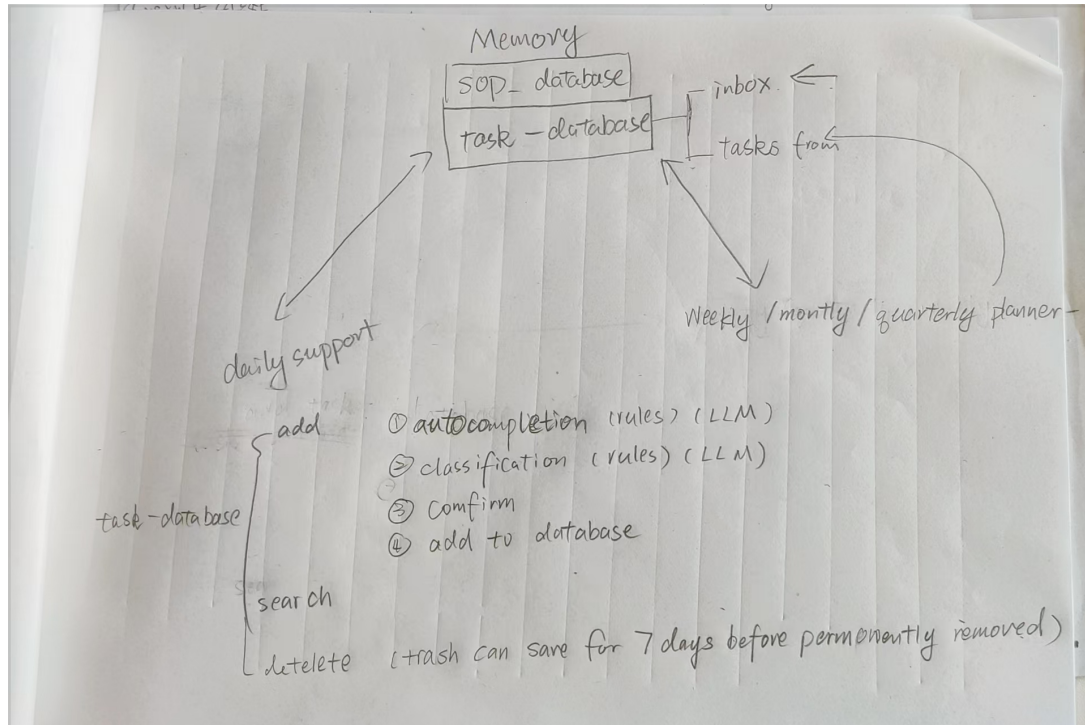 Memory
sop_ database
task-database
inbox.
tasks from
daily support
Weekly /montly/ quarterly planner-
task-database
add
① autocompletion (rules) (LLM)
② classification (rules) (LLM)
③ comfirm
④ add to database
search
detelete (trash can save for 7 days before permonently removed)